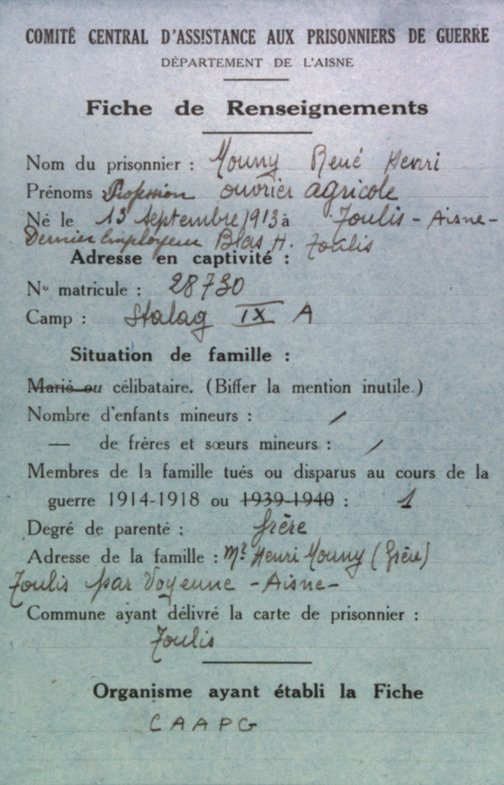 COMITÉ CENTRAL D'ASSISTANCE AUX PRISONNIERS DE GUERRE
DÉPARTEMENT DE L'AISNE
Fiche de Renseignements
Nom du prisonnier : Mouny René Henri
Prénoms : Profession ouvrier agricole
Né le 13 Septembre 1913 à Toulis - Aisne -
Dernier Employeur Blas H. Toulis
Adresse en captivité :
No matricule : 28730
Camp : Stalag IX A
Situation de famille :
Marié ou célibataire. (Biffer la mention inutile.)
Nombre d'enfants mineurs : /
— de frères et sœurs mineurs : /
Membres de la famille tués ou disparus au cours de la
guerre 1914-1918 ou 1939-1940 : 1
Degré de parenté : frère
Adresse de la famille : Mr Henri Mouny (frère)
Toulis par Voyenne - Aisne -
Commune ayant délivré la carte de prisonnier :
Toulis
Organisme ayant établi la Fiche
CAAPG